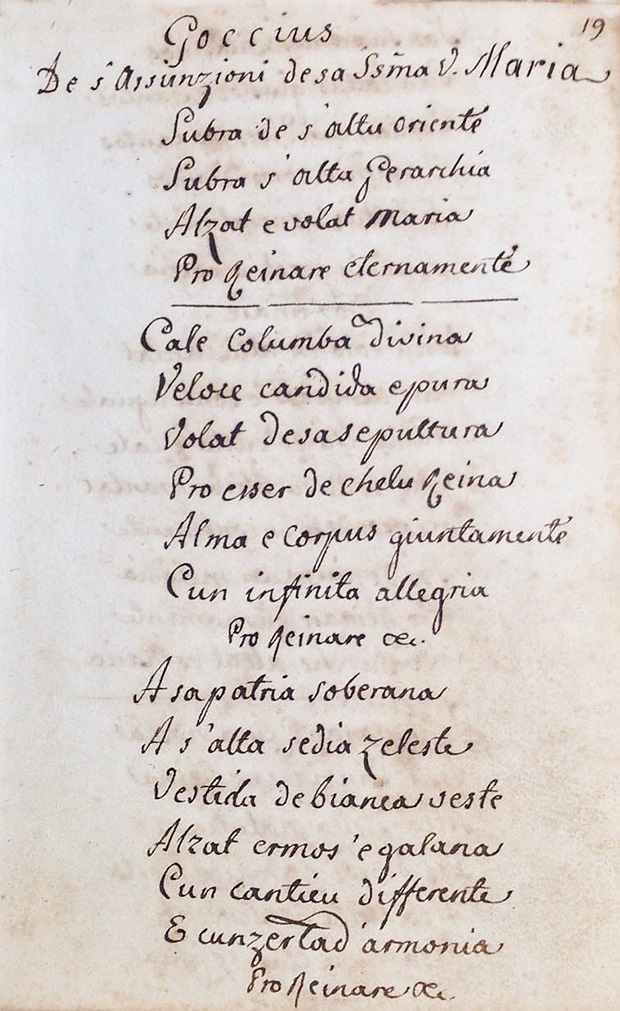 19
Goccius
De s'Assunzioni de sa Ssma V. Maria
Subra de s'altu oriente
Subra s'alta Gerarchia
Alzat e volat Maria
Pro Reinare eternamente
Cale Columba divina
Veloce candida e pura
Volat de sa sepultura
Pro esser de chelu Reina
Alma e corpus giuntamente
Cun infinita allegria
Pro Reinare &c.
A sa patria soberana
A s'alta sedia zeleste
Vestida de bianca veste
Alzat ermos'e galana
Cun cantieu differente
E cunzertad'armonia
Pro Reinare &c.